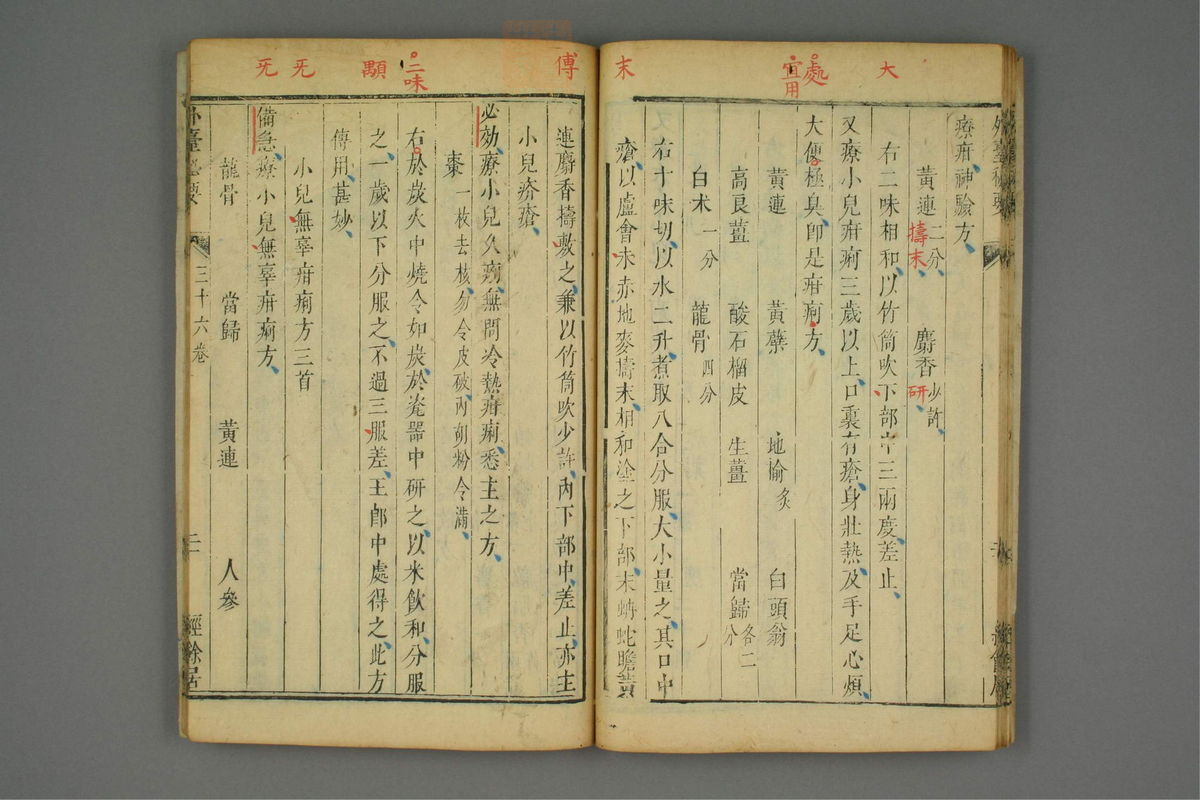 大
處
宜用
末
外臺秘要
療疳神驗方
黃連二分擣末 麝香少許研
右二味相和以竹筒吹下部中三兩度差止
又療小兒疳痢三歲以上口裏有瘡身壯熱及手足心煩
大便極臭卽是疳痢方
黃連 黃蘗 地榆炙 白頭翁
高良薑 酸石榴皮 生薑 當歸各二分
白朮一分 龍骨四分
右十味切以水二升煮取八合分服大小量之其口中
瘡以盧會末赤地麥擣末相和塗之下部末蚺蛇膽黃
傅
二味
顯
旡
旡
連麝香擣敷之兼以竹筒吹少許內下部中差止亦主
小兒疥瘡
必効療小兒久痢無問冷熱疳痢悉主之方
棗一枚去核勿令皮破內胡粉令滿
右於炭火中燒令如炭於瓷器中研之以米飲和分服
之一歲以下分服之不過三服差王郎中處得之此方
傳用甚妙
小兒無辜疳痢方三首
備急療小兒無辜疳痢方
龍骨 當歸 黃連 人參
外臺秘要 三十六卷 三 經餘居